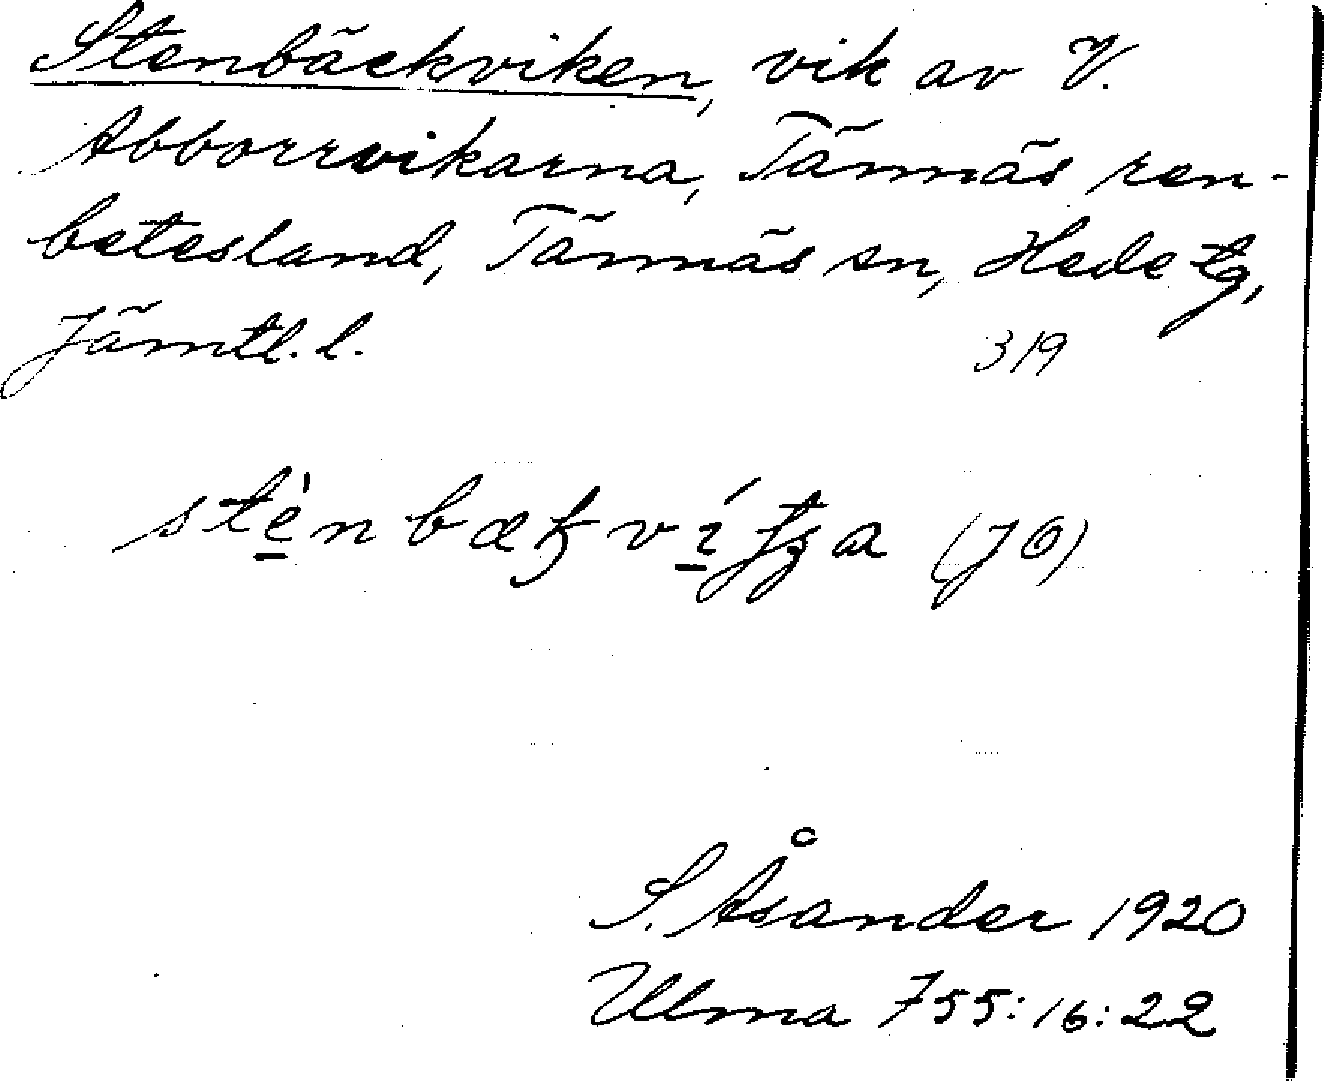 Stenbäckviken, vik av V.
Abborrvikarna, Tännäs ren-
betesland, Tännäs sn, Hede tg,
Jämtl. l.
319
(JO)
S. Åsander 1920
Ulma 755:16:22